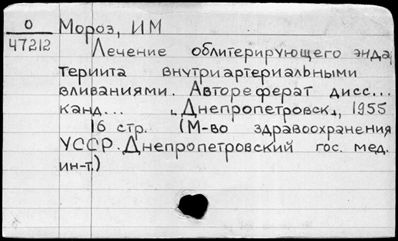 О Мороз, ИМ
47212
Лечение облитерирующего энда
териита внутриартериальными
вливаниями. Автореферат дисс...
канд... „Днепропетровск„, 1955
16 стр. (М-во здравоохранения
УССР. Днепропетровский гос. мед.
ин-т.)